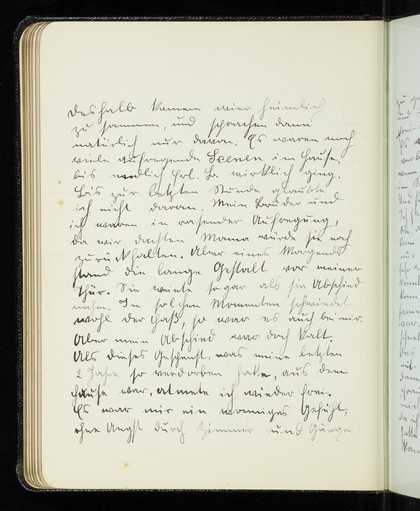 deshalb kamen wier heimlich
zu sammen, und sprachen dann
natürlich nur davon. Es waren noch
viele aufregende Scenen im Hause,
bis endlich Frl. So wirklich ging.
Bis zur letzten Stunde glaubte
ich nicht daran. Mein Bruder und
ich waren in rasender Aufregung,
da wir dachten Mama würde sie noch
zurückhalten. Aber eines Morgens
stand die lange Gestalt vor meiner
Thür. Sie weinte sogar als sie Abschied
nahm. In solchen Momenten schwindet
wohl der Haß, so war es auch bei mir.
Aber mein Abschied war doch kalt.
Als dieses Gespenst, was meine letzten
2 Jahre so verdorben hatte, aus dem
Hause war, atmete ich wieder frei.
Es war mir ein wonniges Gefühl,
ohne Angst durch Zimmer und Gänge